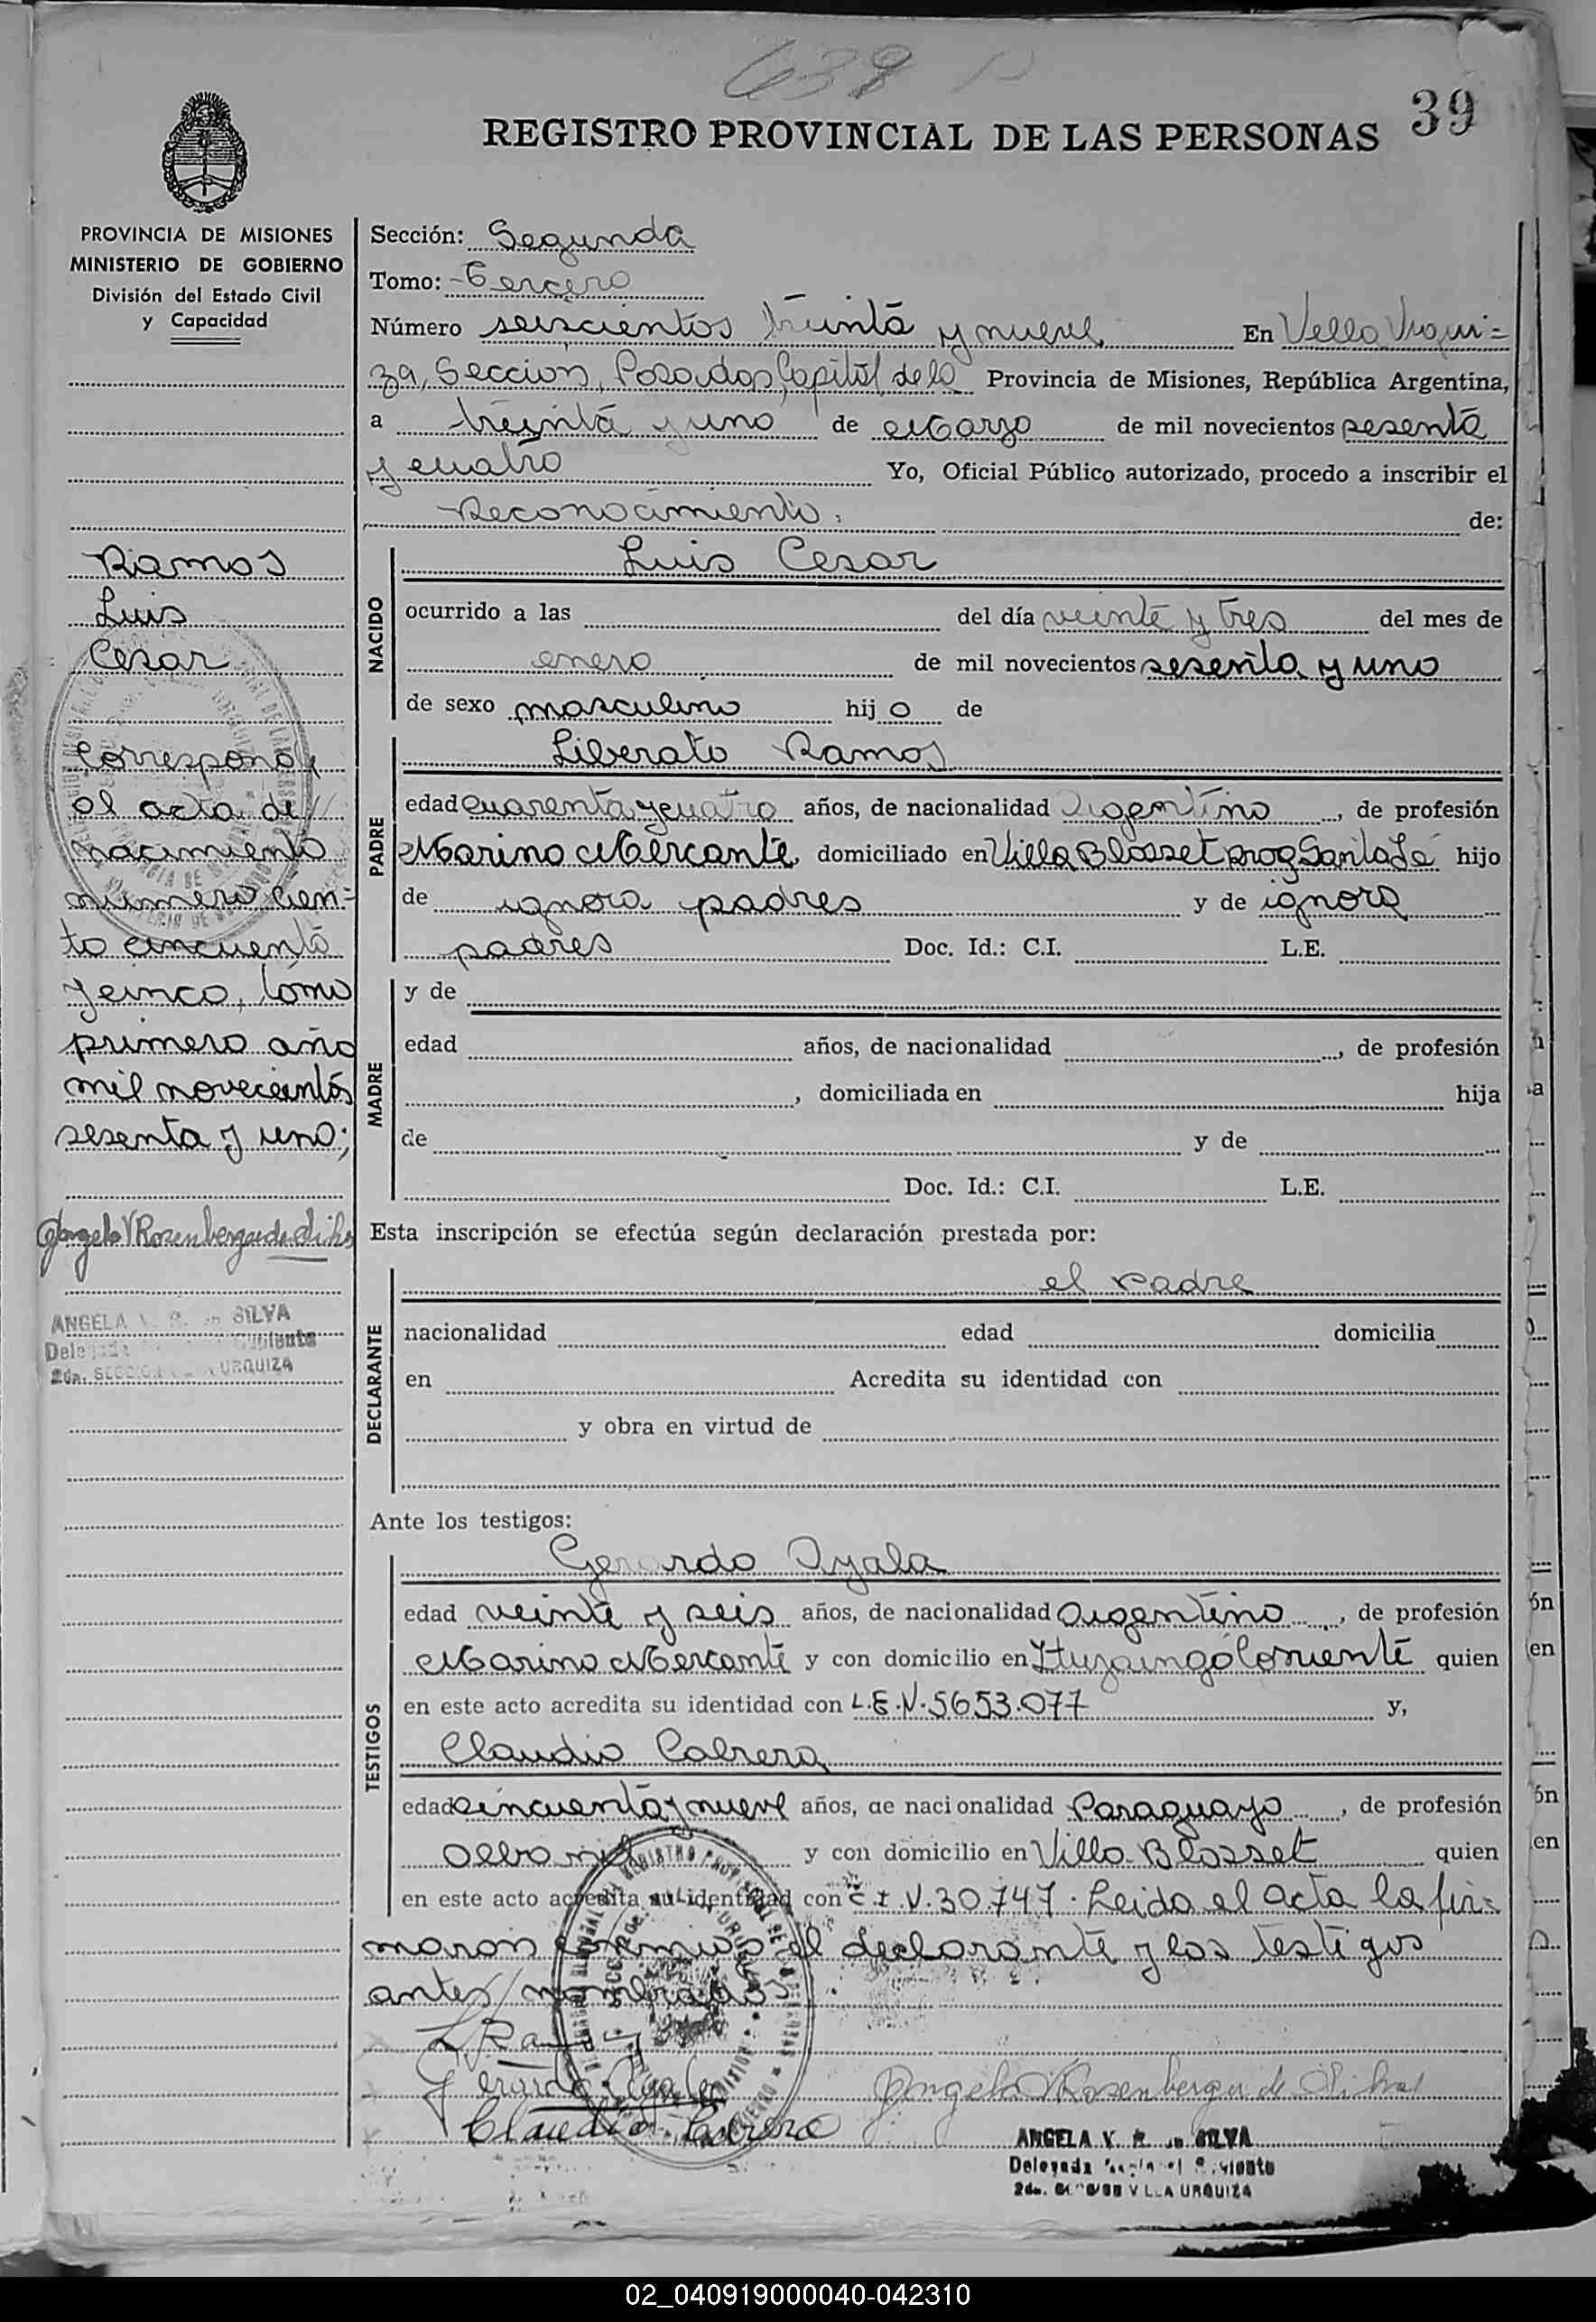 39
REGISTRO PROVINCIAL DE LAS PERSONAS
PROVINCIA DE MISIONES
MINISTERIO DE GOBIERNO
División del Estado Civil
y Capacidad
Ramos
Luis
Cesar
Corresponde
al acta de
nacimiento
numero cien-
to cincuenta
y cinco, tomo
primero año
mil novecientos
sesenta y uno;
Angela V Rosenberger de Silva
ANGELA V. R. de SILVA
2da. SECCION VILLA URQUIZA
Sección: Segunda
Tomo: Tercero
Número seiscientos treinta y nueve En Villa Urqui=
za, Seccion, Posadas, Capital de la Provincia de Misiones, República Argentina,
a treinta y uno de Marzo de mil novecientos sesenta
y cuatro Yo, Oficial Público autorizado, procedo a inscribir el
Reconocimiento: de:
NACIDO
Luis Cesar
ocurrido a las del día veinte y tres del mes de
enero de mil novecientos sesenta y uno
de sexo masculino hij o de
PADRE
Liberato Ramos
edad cuarenta y cuatro años, de nacionalidad Argentino, de profesión
Marino Mercante, domiciliado en Villa Blosset Santa Fé hijo
de ignora padres y de ignora
padres Doc. Id.: C.I. L.E.
MADRE
y de
edad años, de nacionalidad , de profesión
, domiciliada en hija
de y de
Doc. Id.: C.I. L.E.
Esta inscripción se efectúa según declaración prestada por:
DECLARANTE
el Padre
nacionalidad edad domicilia
en Acredita su identidad con
y obra en virtud de
Ante los testigos:
TESTIGOS
Gerardo Ayala
edad veinte y seis años, de nacionalidad Argentino, de profesión
Marino Mercante y con domicilio en Ituzaingó Corriente quien
en este acto acredita su identidad con L.E.N.5653.077 y,
Claudio Cabrera
edad cincuenta y nueve años, de nacionalidad Paraguayo, de profesión
y con domicilio en Villa Blosset quien
en este acto acredita su identidad con C.I.N.30.747. Leida el acta la fir=
maron conmigo el declarante y los testigos
antes nombrados.
L Ramos
Gerardo Ayala
Claudio Cabrera
Angela V Rosenberger de Silva
ANGELA V. R. de SILVA
2da. SECCION VILLA URQUIZA
02_040919000040-042310